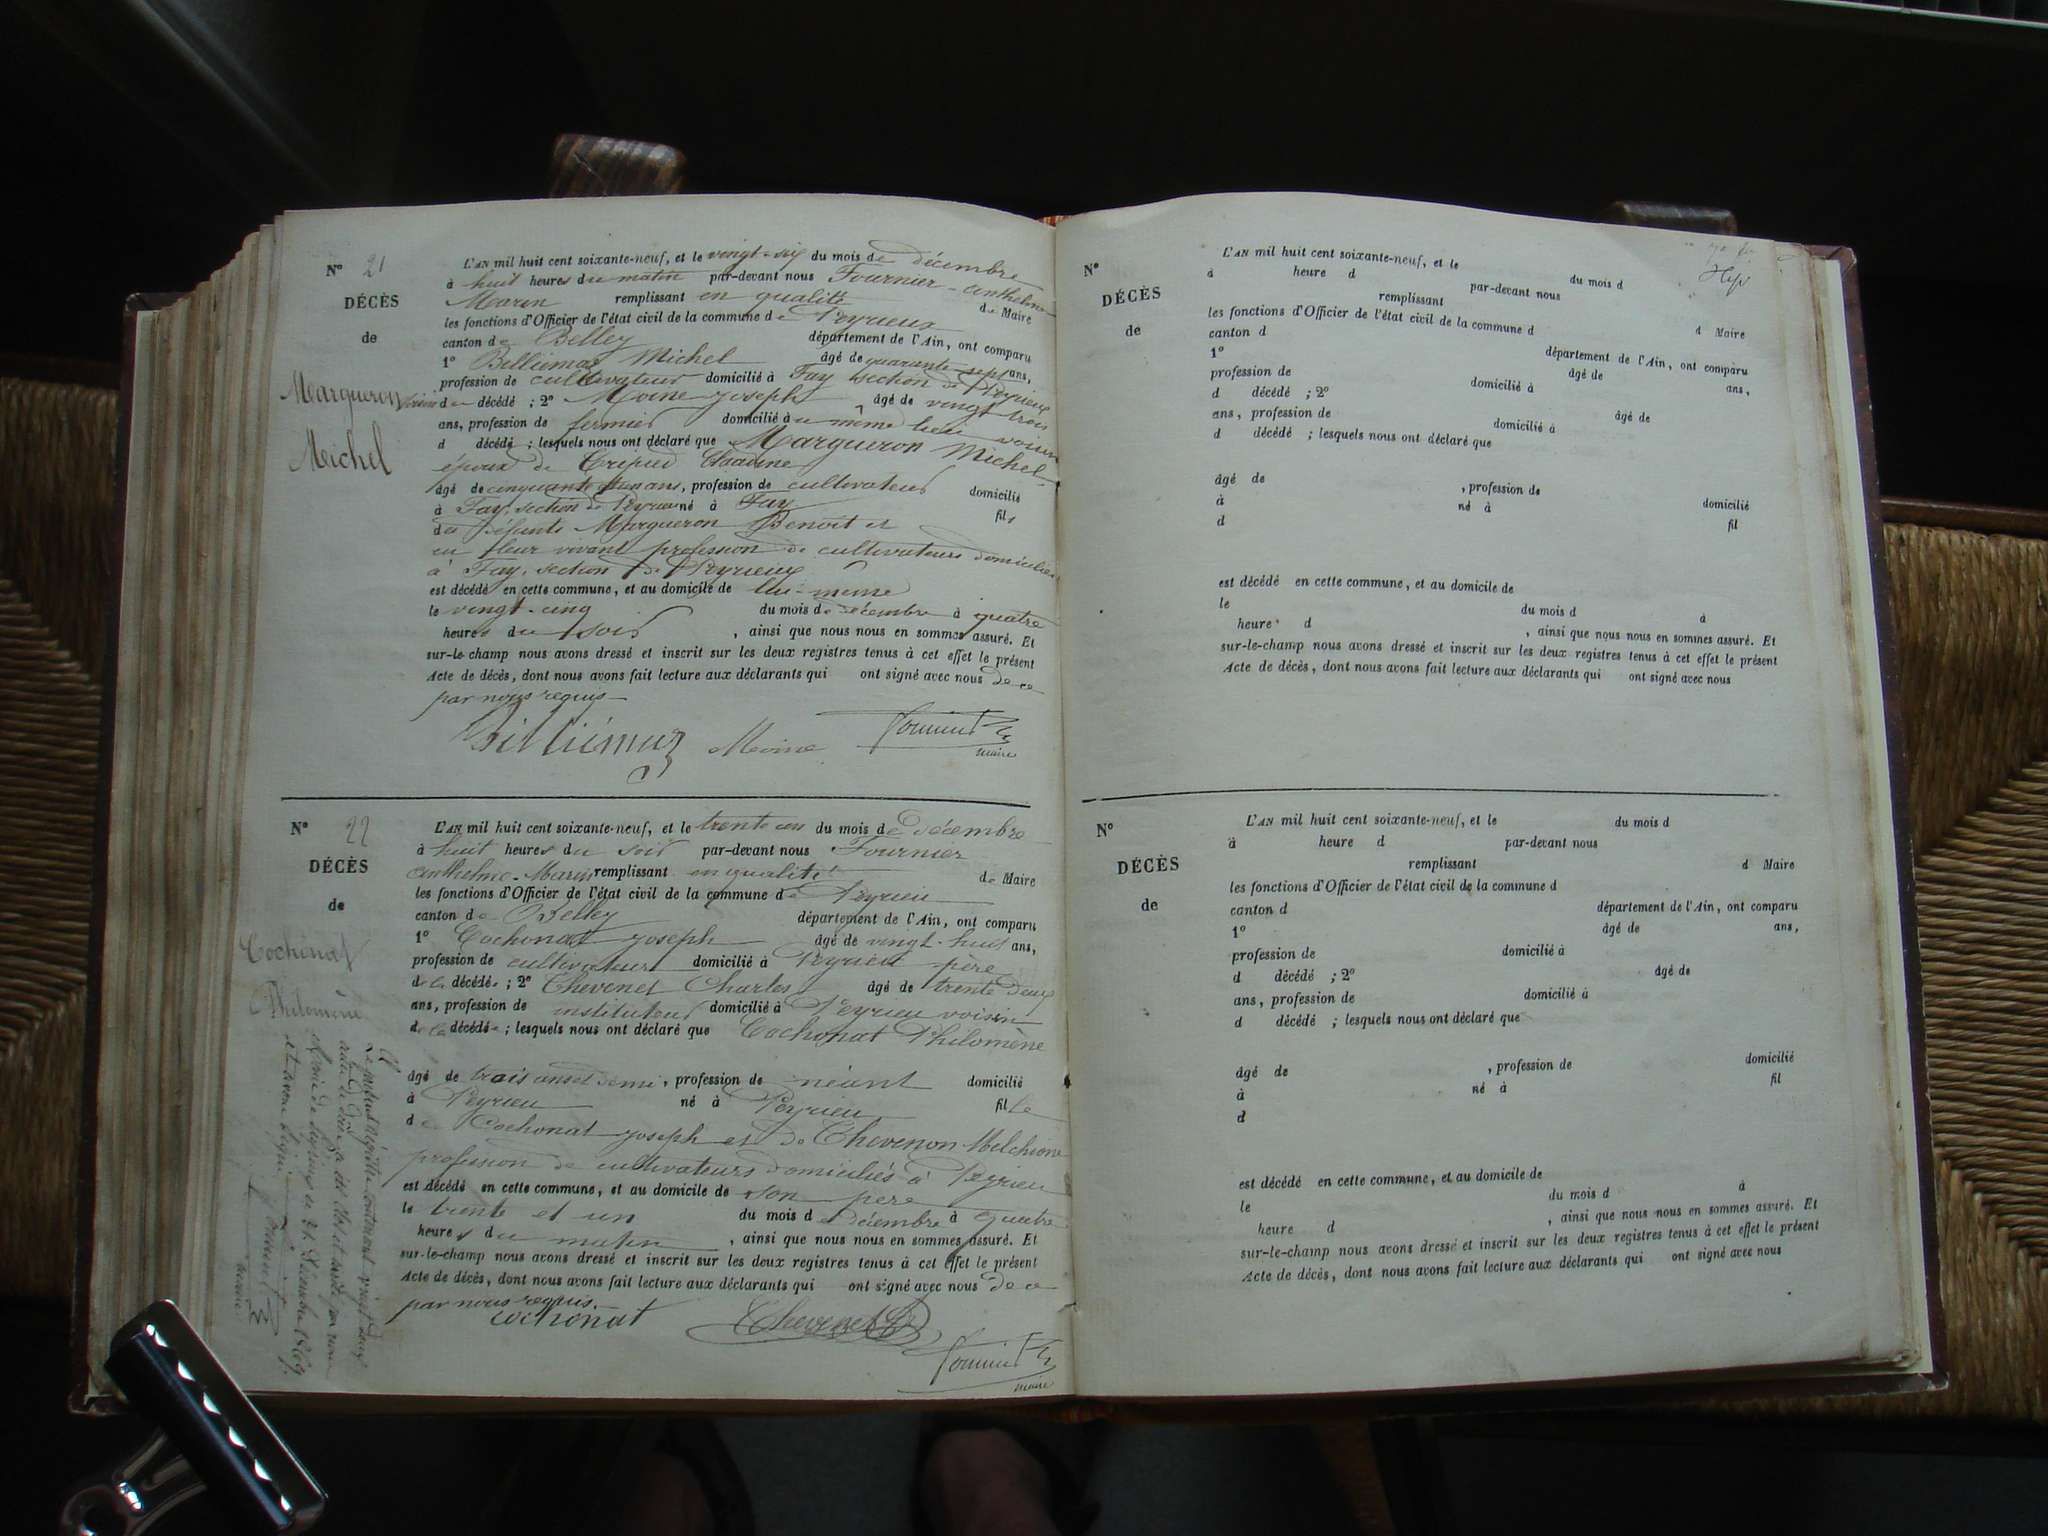 N° 21
DÉCÈS
de
Margueron
Michel
L'AN mil huit cent soixante-neuf, et le vingt-six du mois de décembre
à huit heures du matin par-devant nous Fournier-anthelme
Marin remplissant en qualité de Maire
les fonctions d'Officier de l'état civil de la commune de Peyrieux
canton de Belley département de l'Ain, ont comparu
1° Belliemaz Michel âgé de quarante-sept ans,
profession de cultivateur domicilié à Fay section de Peyrieux
voisin du décédé ; 2° Moine Joseph âgé de vingt trois
ans, profession de fermier domicilié au même lieu voisin
d décédé ; lesquels nous ont déclaré que Margueron Michel
époux de Claudine
âgé de cinquante ans, profession de cultivateur domicilié
à Fay, section de Peyrieu né à Fay fils
des défunts Margueron Benoît et
en leur vivant profession de cultivateurs domiciliés
à Fay, section de Peyrieux
est décédé en cette commune, et au domicile de lui-même
le vingt-cinq du mois de décembre à quatre
heures du soir , ainsi que nous nous en sommes assuré. Et
sur-le-champ nous avons dressé et inscrit sur les deux registres tenus à cet effet le présent
Acte de décès, dont nous avons fait lecture aux déclarants qui ont signé avec nous de ce
par nous requis
Billiémaz Moine Fournier
maire
N° 22
DÉCÈS
de
Cochonat
Philomène
L'AN mil huit cent soixante-neuf, et le trente un du mois de décembre
à huit heures du soir par-devant nous Fournier
anthelme-Marin remplissant en qualité de Maire
les fonctions d'Officier de l'état civil de la commune de Peyrieu
canton de Belley département de l'Ain, ont comparu
1° Cochonat Joseph âgé de vingt-huit ans,
profession de cultivateur domicilié à Peyrieu père
de la décédée ; 2° Chevenet Charles âgé de trente deux
ans, profession de instituteur domicilié à Peyrieu voisin
de la décédée ; lesquels nous ont déclaré que Cochonat Philomène
âgé de trois ans et demi, profession de néant domicilié
à Peyrieu né à Peyrieu fille
de Cochonat Joseph et de Chevenon Melchione
profession de cultivateurs domiciliés à Peyrieu
est décédé en cette commune, et au domicile de son père
le trente et un du mois de décembre à quatre
heures du matin , ainsi que nous nous en sommes assuré. Et
sur-le-champ nous avons dressé et inscrit sur les deux registres tenus à cet effet le présent
Acte de décès, dont nous avons fait lecture aux déclarants qui ont signé avec nous de ce
par nous requis.
cochonat Chevenet Fournier
maire
Le présent Registre contenant vingt deux
actes de décès a été clos et arrêté par nous
Maire de Peyrieu le 31 Décembre 1869
Fournier
maire
N°
DÉCÈS
de
L'AN mil huit cent soixante-neuf, et le du mois d
à heure d par-devant nous
remplissant d Maire
les fonctions d'Officier de l'état civil de la commune d
canton d département de l'Ain, ont comparu
1° âgé de ans,
profession de domicilié à
d décédé ; 2° âgé de
ans, profession de domicilié à
d décédé ; lesquels nous ont déclaré que
âgé de , profession de domicilié
à né à fil
d
est décédé en cette commune, et au domicile de
le du mois d à
heure d , ainsi que nous nous en sommes assuré. Et
sur-le-champ nous avons dressé et inscrit sur les deux registres tenus à cet effet le présent
Acte de décès, dont nous avons fait lecture aux déclarants qui ont signé avec nous
N°
DÉCÈS
de
L'AN mil huit cent soixante-neuf, et le du mois d
à heure d par-devant nous
remplissant d Maire
les fonctions d'Officier de l'état civil de la commune d
canton d département de l'Ain, ont comparu
1° âgé de ans,
profession de domicilié à
d décédé ; 2° âgé de
ans, profession de domicilié à
d décédé ; lesquels nous ont déclaré que
âgé de , profession de domicilié
à né à fil
d
est décédé en cette commune, et au domicile de
le du mois d à
heure d , ainsi que nous nous en sommes assuré. Et
sur-le-champ nous avons dressé et inscrit sur les deux registres tenus à cet effet le présent
Acte de décès, dont nous avons fait lecture aux déclarants qui ont signé avec nous